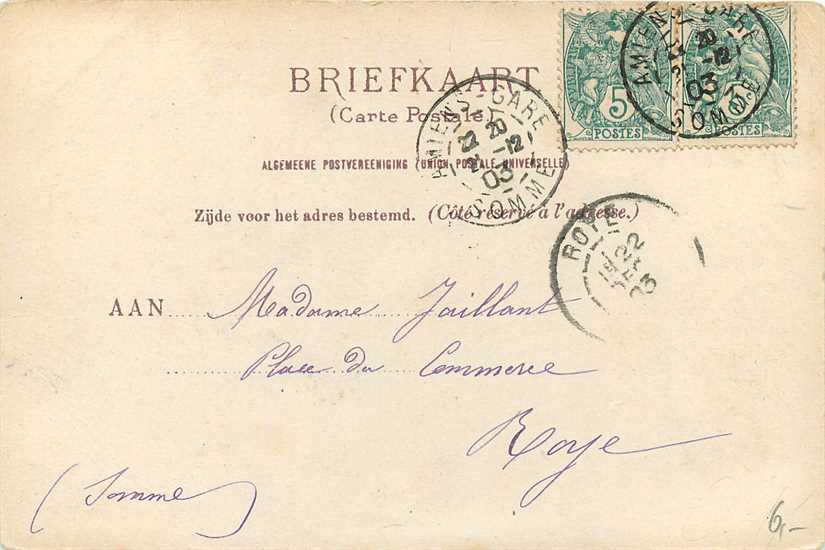 BRIEFKAART
(Carte Postale)
ALGEMEENE POSTVEREENIGING (UNION POSTALE UNIVERSELLE)
Zijde voor het adres bestemd. (Côté réservé à l'adresse.)
5
POSTES
5
POSTES
AMIENS-GARE
22 20
2 -12
03
SOMME
AMIENS-GARE
20
-12
03
SOMME
ROYE
22
03
AAN Madame Jaillant
Place du Commerce
Roye
(Somme)
6,-